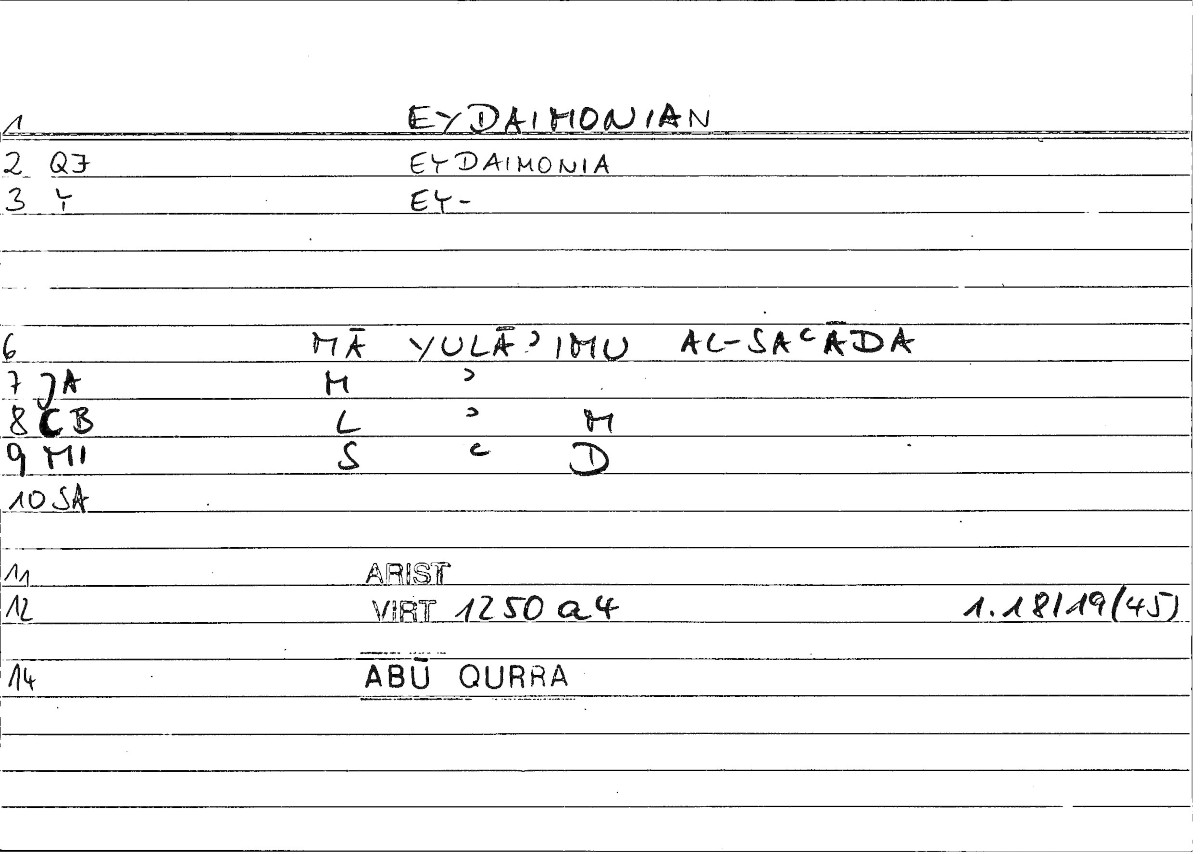 1 EYDAIMONIAN
2 QJ EYDAIMONIA
3 Y EY-
6 MĀ YULĀʾIMU AL-SAʿĀDA
7 JA M ʾ
8 CB L ʾ M
9 MI S ʿ D
10 SA
11 ARIST
12 VIRT 1250 a 4 1.18/19(45)
14 ABŪ QURRA